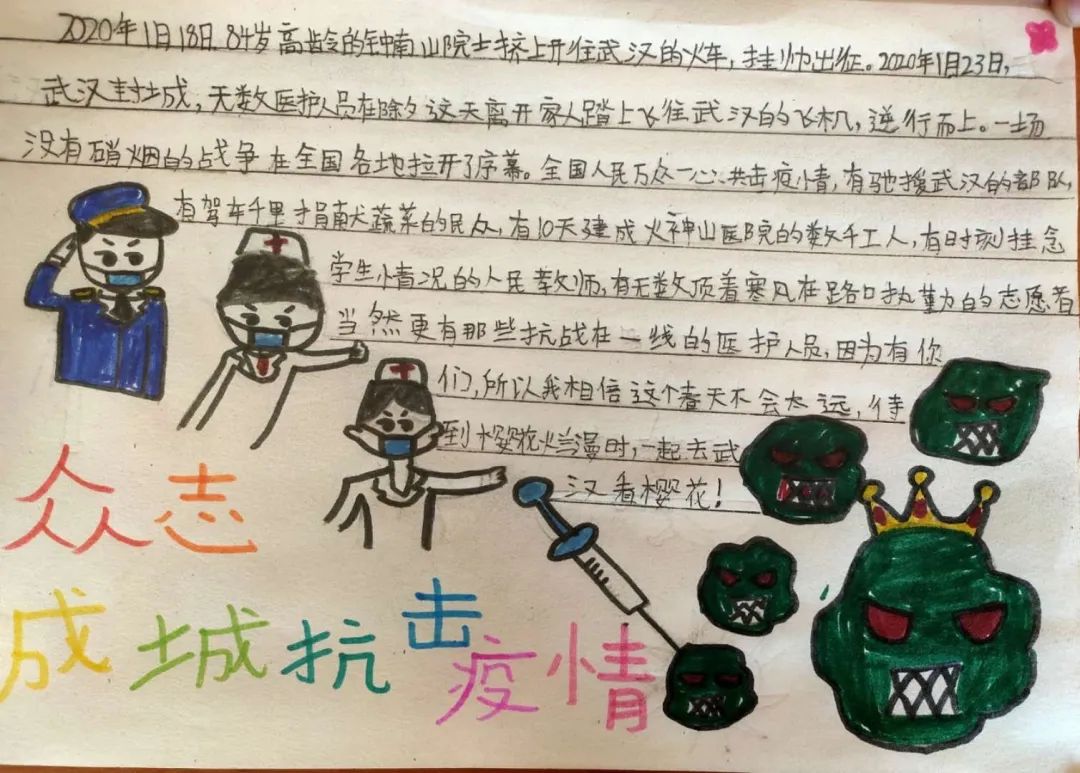 2020年1月18日,84岁高龄的钟南山院士挤上开往武汉的火车,挂帅出征。2020年1月23日,
武汉封城,无数医护人员在除夕这天离开家人踏上飞往武汉的飞机,逆行而上。一场
没有硝烟的战争在全国各地拉开了序幕。全国人民万众一心、共击疫情,有驰援武汉的部队,
有驾车千里捐献蔬菜的民众,有10天建成火神山医院的数千工人,有时刻挂念
学生情况的人民教师,有无数顶着寒风在路口执勤的志愿者
当然更有那些抗战在一线的医护人员,因为有你
们,所以我相信这个春天不会太远,待
到樱花烂漫时,一起去武
汉看樱花!
众志
成城抗击
疫情